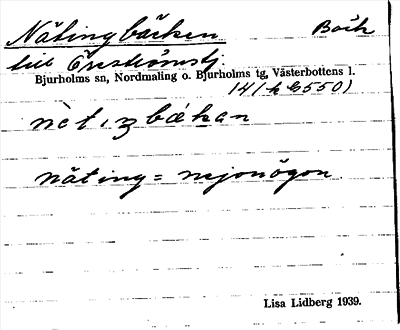 Nätingbäcken Bäck
till Örströmstj.
Bjurholms sn, Nordmaling o. Bjurholms tg, Västerbottens l.
nèt,ɪȥbækan
näting = nejonögon
Lisa Lidberg 1939.